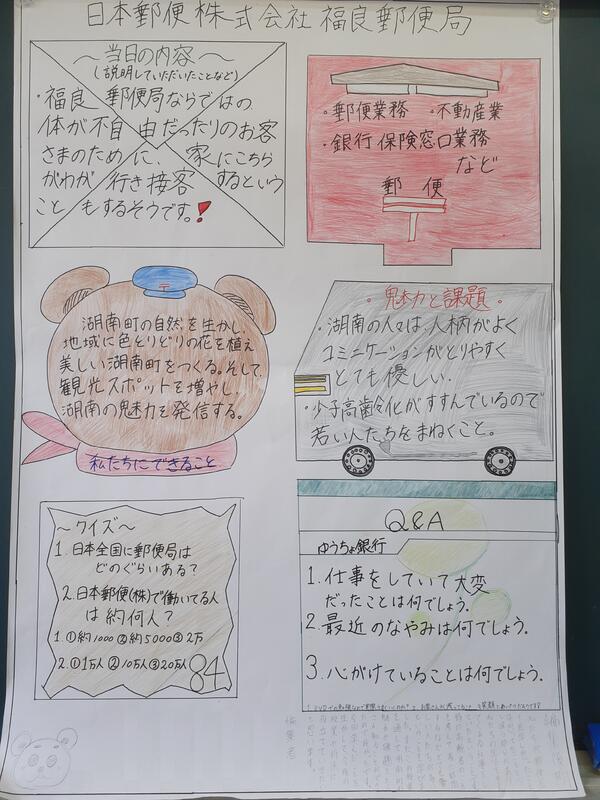 日本郵便株式会社 福良郵便局
〜当日の内容〜
(説明していただいたことなど)
・福良郵便局ならではの
体が不自由だったりのお客
さまのために、家にこちら
がわが行き接客するという
こともするそうです。!
・郵便業務 ・不動産業
・銀行保険窓口業務
など
郵便
〒
湖南町の自然を生かし、
地域に色とりどりの花を植え
美しい湖南町をつくる。そして、
観光スポットを増やし、
湖南の魅力を発信する。
私たちにできること
・魅力と課題・
・湖南の人々は、人柄がよく
コミニケーションがとりやすく
とても優しい。
・少子高齢化がすすんでいるので
若い人たちをまねくこと。
〜クイズ〜
1.日本全国に郵便局は
どのぐらいある?
2.日本郵便(株)で働いてる人
は約何人?
1.①約1000②約5000③2万
2.①1万人②10万人③20万人
84
Q&A
ゆうちょ銀行
1.仕事をしていて大変
だったことは何でしょう。
2.最近のなやみは何でしょう。
3.心がけていることは何でしょう。